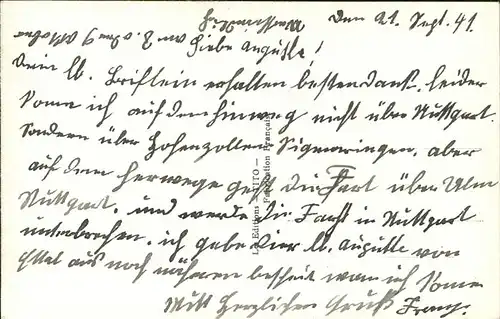 Den 21. Sept. 41.
Liebe Auguste!
Dein lb. Brieflein erhalten besten dank. leider
kome ich auf dem hinweg nicht über Stuttgart.
Sondern über Hohenzollern Sigmaringen, aber
auf dem herwege geht die Fart über Ulm
Stuttgart, und werde die Fahrt in Stuttgart
unterbrechen, ich gebe Dier lb. Auguste von
Ettal aus noch näheren bescheit wan ich kome.
Mitt Herzlichen Gruß
Franz.